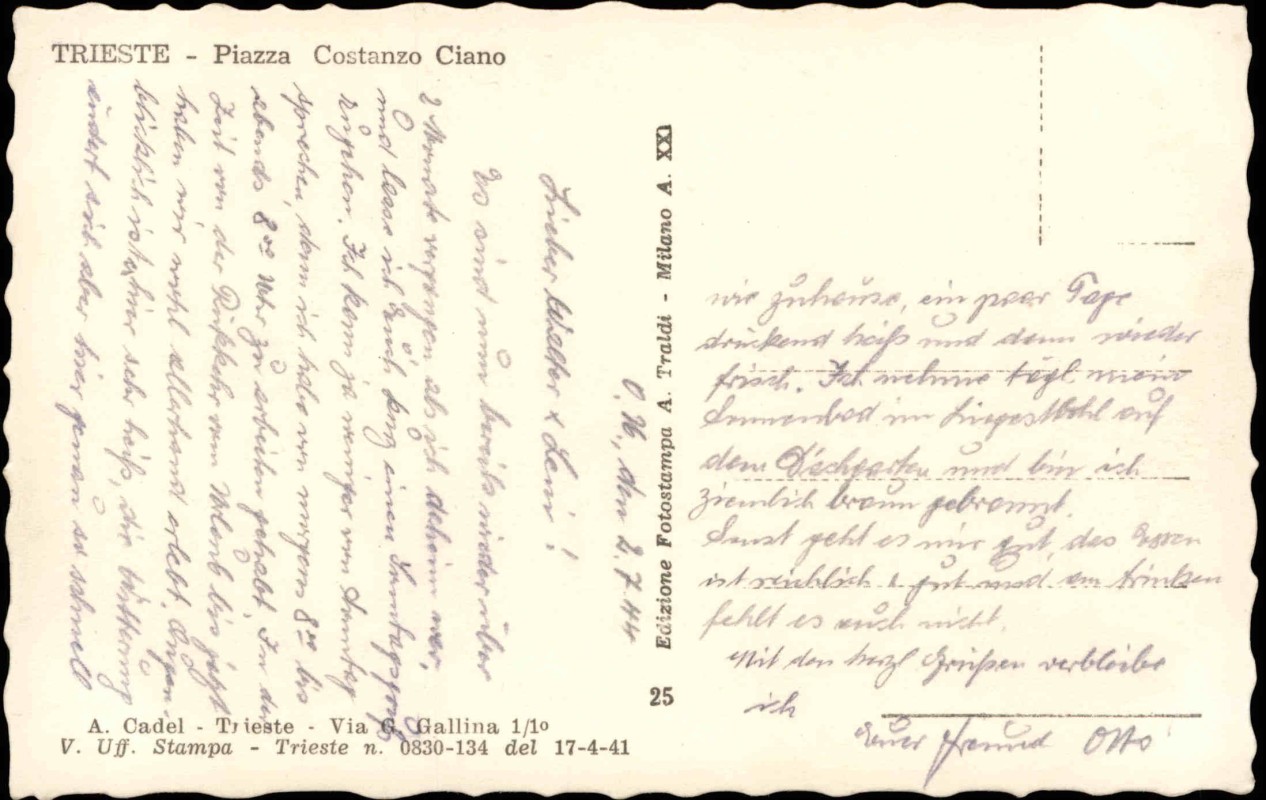 TRIESTE - Piazza Costanzo Ciano
O. N., den 2.7.44
Lieber Walter & Leni!
Es sind nun bereits wieder über
2 Monate vergangen als ich daheim war,
und lasse ich Euch kurz einen Sonntagsgruß
zugehen. Ich kann ja weniger von Sonntag
sprechen, denn ich habe von morgens 8°° bis
abends 8°° Uhr zu arbeiten gehabt. In der
Zeit von der Rückkehr vom Urlaub bis jetzt
haben wir wohl allerhand erlebt. Augen-
blicklich ist es hier sehr heiß, die Witterung
ändert sich aber hier genau so schnell
wie zuhause, ein paar Tage
drückend heiß und dann wieder
frisch. Ich nehme tägl. mein
Sonnenbad im Liegestuhl auf
dem Dachgarten und bin ich
ziemlich braun gebrannt.
Sonst geht es mir gut, das Essen
ist reichlich & gut und am trinken
fehlt es auch nicht.
Mit den herzl. Grüßen verbleibe
ich
Euer Freund Otto
Edizione Fotostampa A. Traldi - Milano A. XXI
25
A. Cadel - Trieste - Via G. Gallina 1/1º
V. Uff. Stampa - Trieste n. 0830-134 del 17-4-41